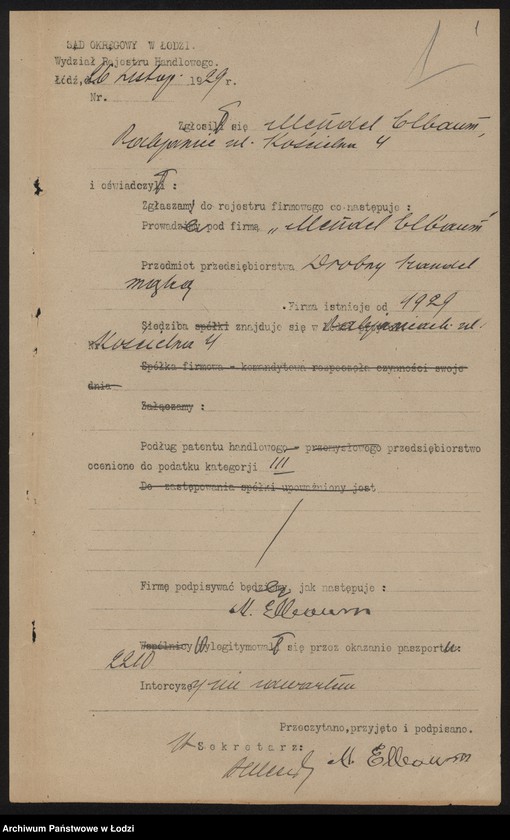 SĄD OKRĘGOWY W ŁODZI.
Wydział Rejestru Handlowego.
Łódź, 26 listop. 1929 r.
Nr.
Zgłosił się Mendel Elbaum,
Pabjanice ul. Kościelna 4
i oświadczył :
Zgłaszam do rejestru firmowego co następuje :
Prowadzę pod firmą „Mendel Elbaum"
Przedmiot przedsiębiorstwa Drobny handel
mąką
. Firma istnieje od 1929
Siedziba spółki znajduje się w Pabjanicach ul.
Kościelna 4
Spółka firmowa - komandytowa rozpoczęła czynności swoje
dnia
Załączamy :
Podług patentu handlowego - przemysłowego przedsiębiorstwo
ocenione do podatku kategorji III
Do zastępowania spółki upoważniony jest
Firmę podpisywać będę, jak następuje :
M. Elbaum
Wspólnicy Wylegitymował się przez okazanie paszportu:
2210
Intercyzy nie zawarłem
Przeczytano, przyjęto i podpisano.
Sekretarz:
M. Elbaum
Archiwum Państwowe w Łodzi